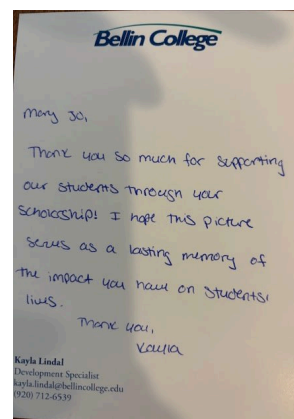 Bellin College
Mary Jo,
Thank you so much for supporting
our students through your
scholarship! I hope this picture
serves as a lasting memory of
the impact you have on students'
lives.
Thank you,
Kayla
Kayla Lindal
Development Specialist
kayla.lindal@bellincollege.edu
(920) 712-6539